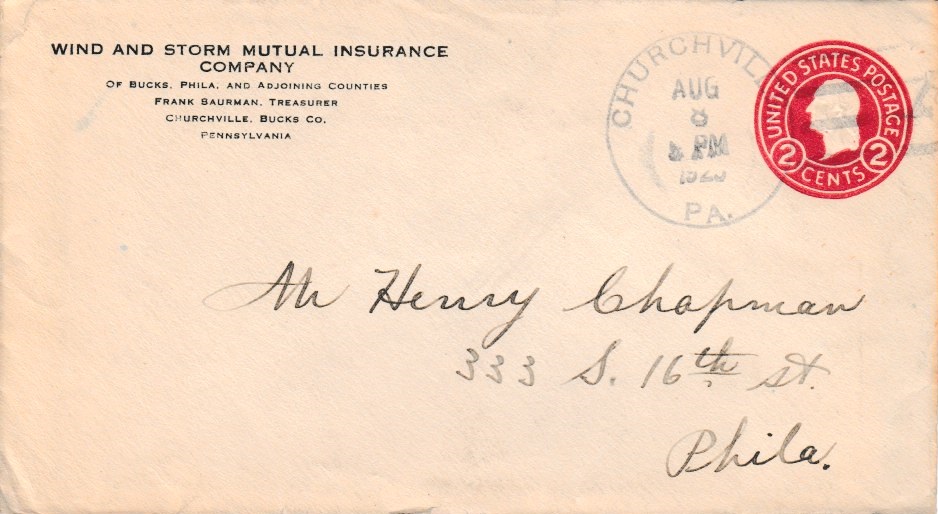 WIND AND STORM MUTUAL INSURANCE
COMPANY
OF BUCKS, PHILA, AND ADJOINING COUNTIES
FRANK SAURMAN, TREASURER
CHURCHVILLE, BUCKS CO.
PENNSYLVANIA
CHURCHVILL
AUG
8
PM
PA.
UNITED STATES POSTAGE
2 CENTS 2
Mr Henry Chapman
333 S. 16th st.
Phila.